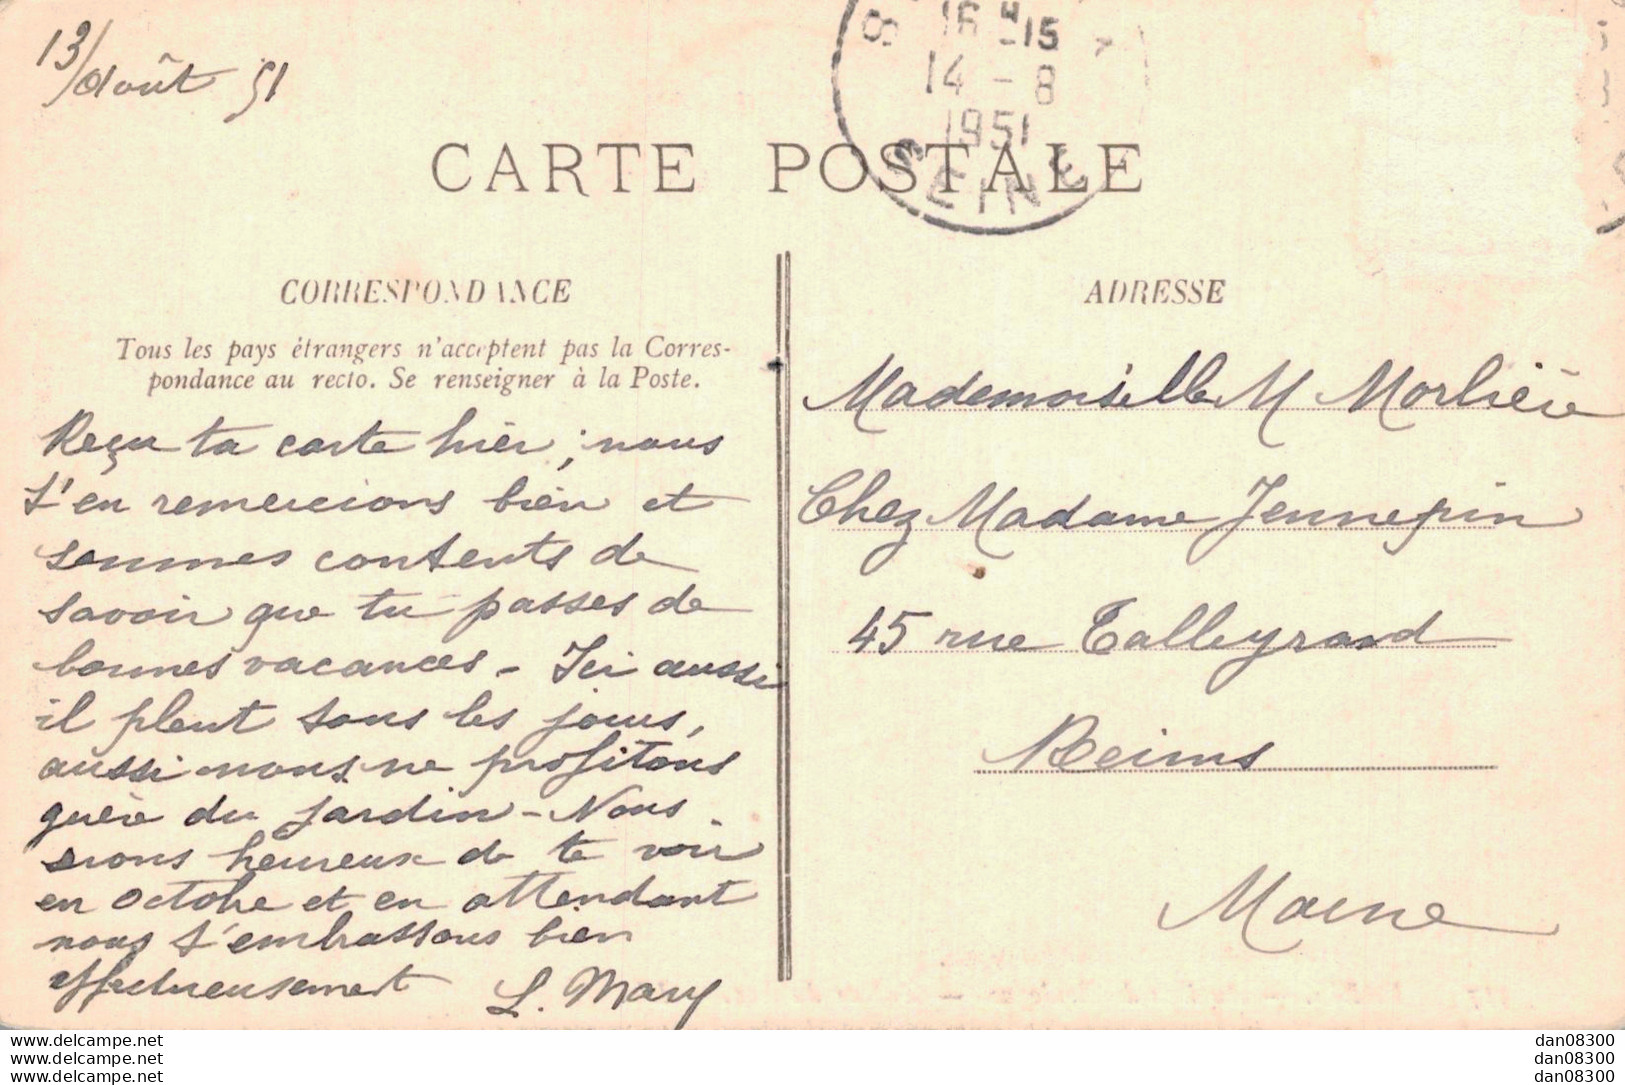 13/août 51
16 H 15
14 - 8
1951
SEINE
CARTE POSTALE
CORRESPONDANCE
Tous les pays étrangers n'acceptent pas la Corres-
pondance au recto. Se renseigner à la Poste.
Reçu ta carte hier, nous
t'en remercions bien et
sommes contents de
savoir que tu passes de
bonnes vacances - Ici aussi
il pleut tous les jours,
aussi nous ne profitons
guère du jardin - Nous
serons heureux de te voir
en Octobre et en attendant
nous t'embrassons bien
affectueusement L. Mary
ADRESSE
Mademoiselle M Morlière
Chez Madame Jennepin
45 rue Talleyrand
Reims
Marne
www.delcampe.net
www.delcampe.net
www.delcampe.net
dan08300
dan08300
dan08300